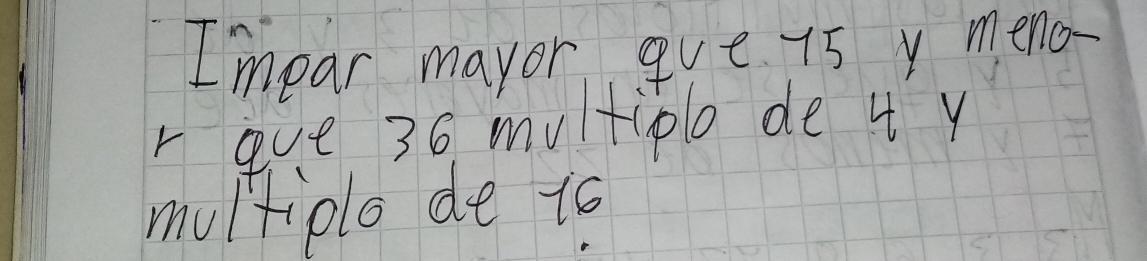 Impar mayor que 15 y meno-
r que 36 multiplo de 4 y
multiplo de 16.